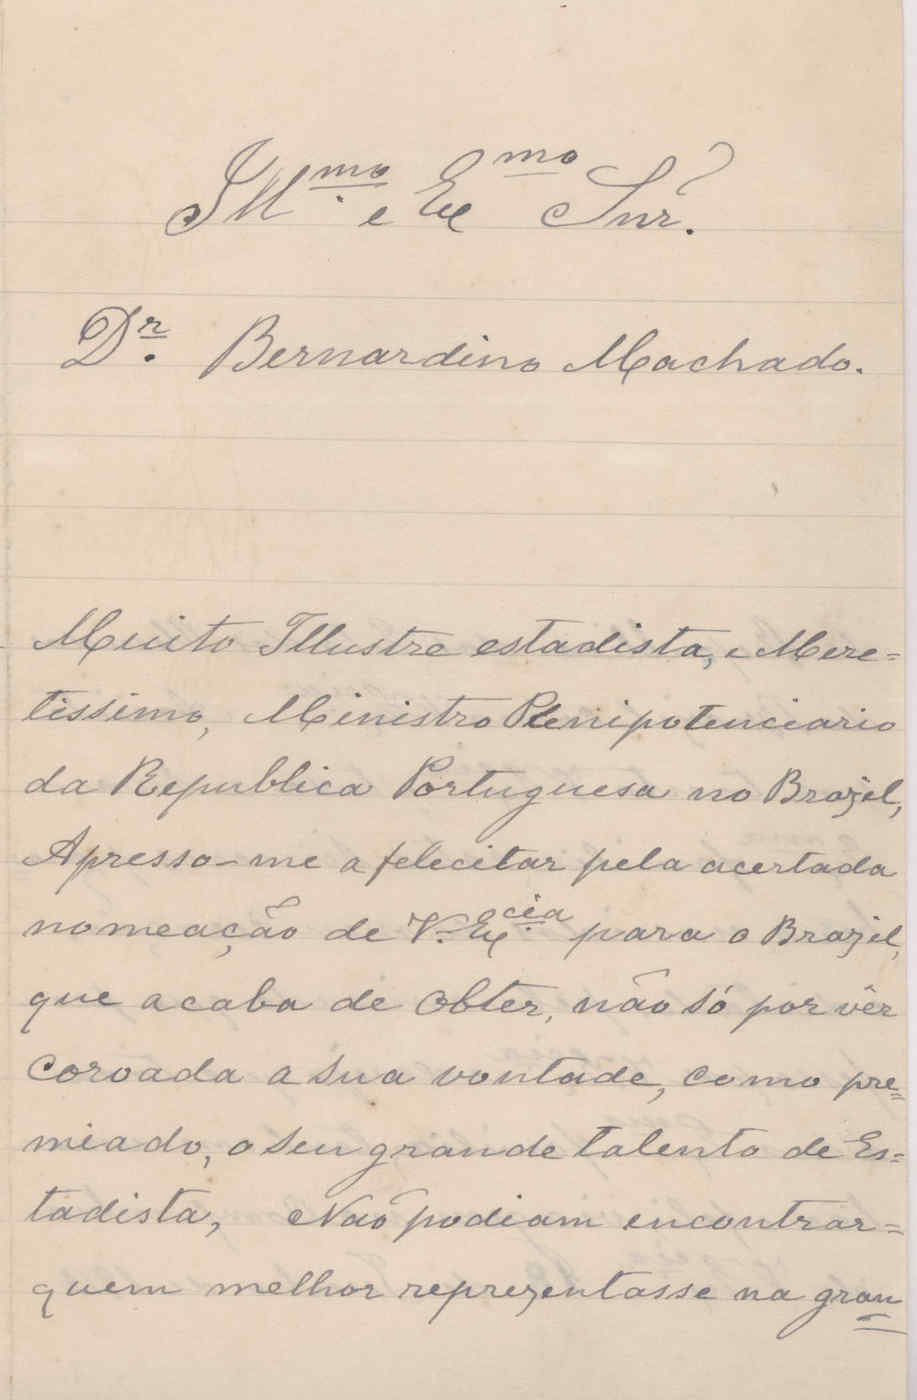 Ill.mo e Ex mo Snr.
Dr. Bernardino Machado.
Muito Illustre estadista, e Mere=
tissimo, Ministro Plenipotenciario
da Republica Portuguesa no Brazil,
Apresso-me a felecitar pela acertada
nomeação de V. Ex.cia para o Brazil,
que acaba de obter, não só por vêr
coroada a sua vontade, como pre=
miado, o seu grande talento de Es=
tadista, Não podiam encontrar=
quem melhor reprezentasse na gran=